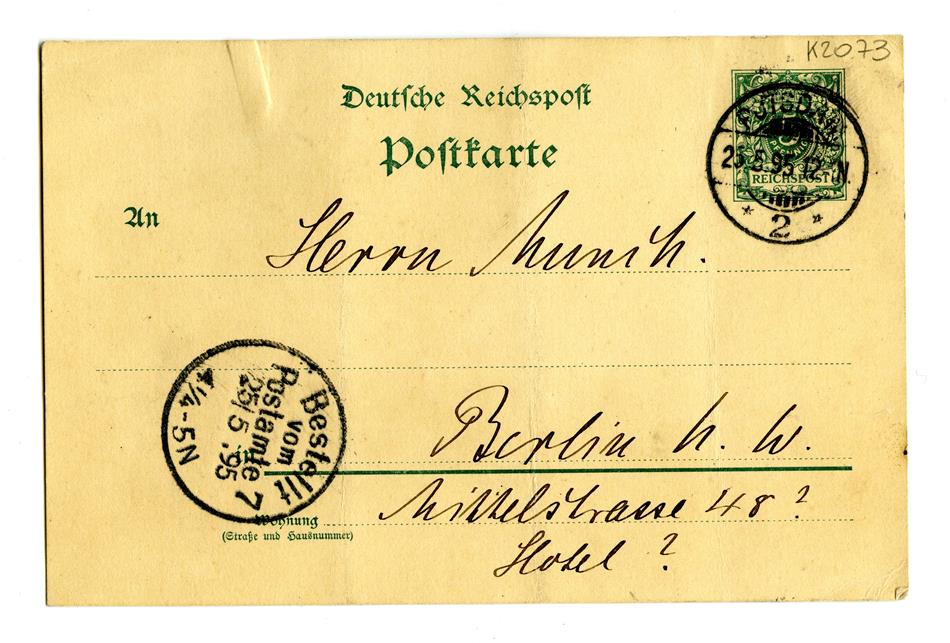 K2073
Deutsche Reichspost
Postkarte
POTSDAM
25 5.95 12- N.
* 2 *
5
PFENNIG
REICHSPOST
An
Herrn Munch.
Bestellt
vom
Postamte 7
25/5.95
4¼-5N
in
Berlin N. W.
Wohnung
(Straße und Hausnummer)
Mittelstrasse 48?
Hotel ?